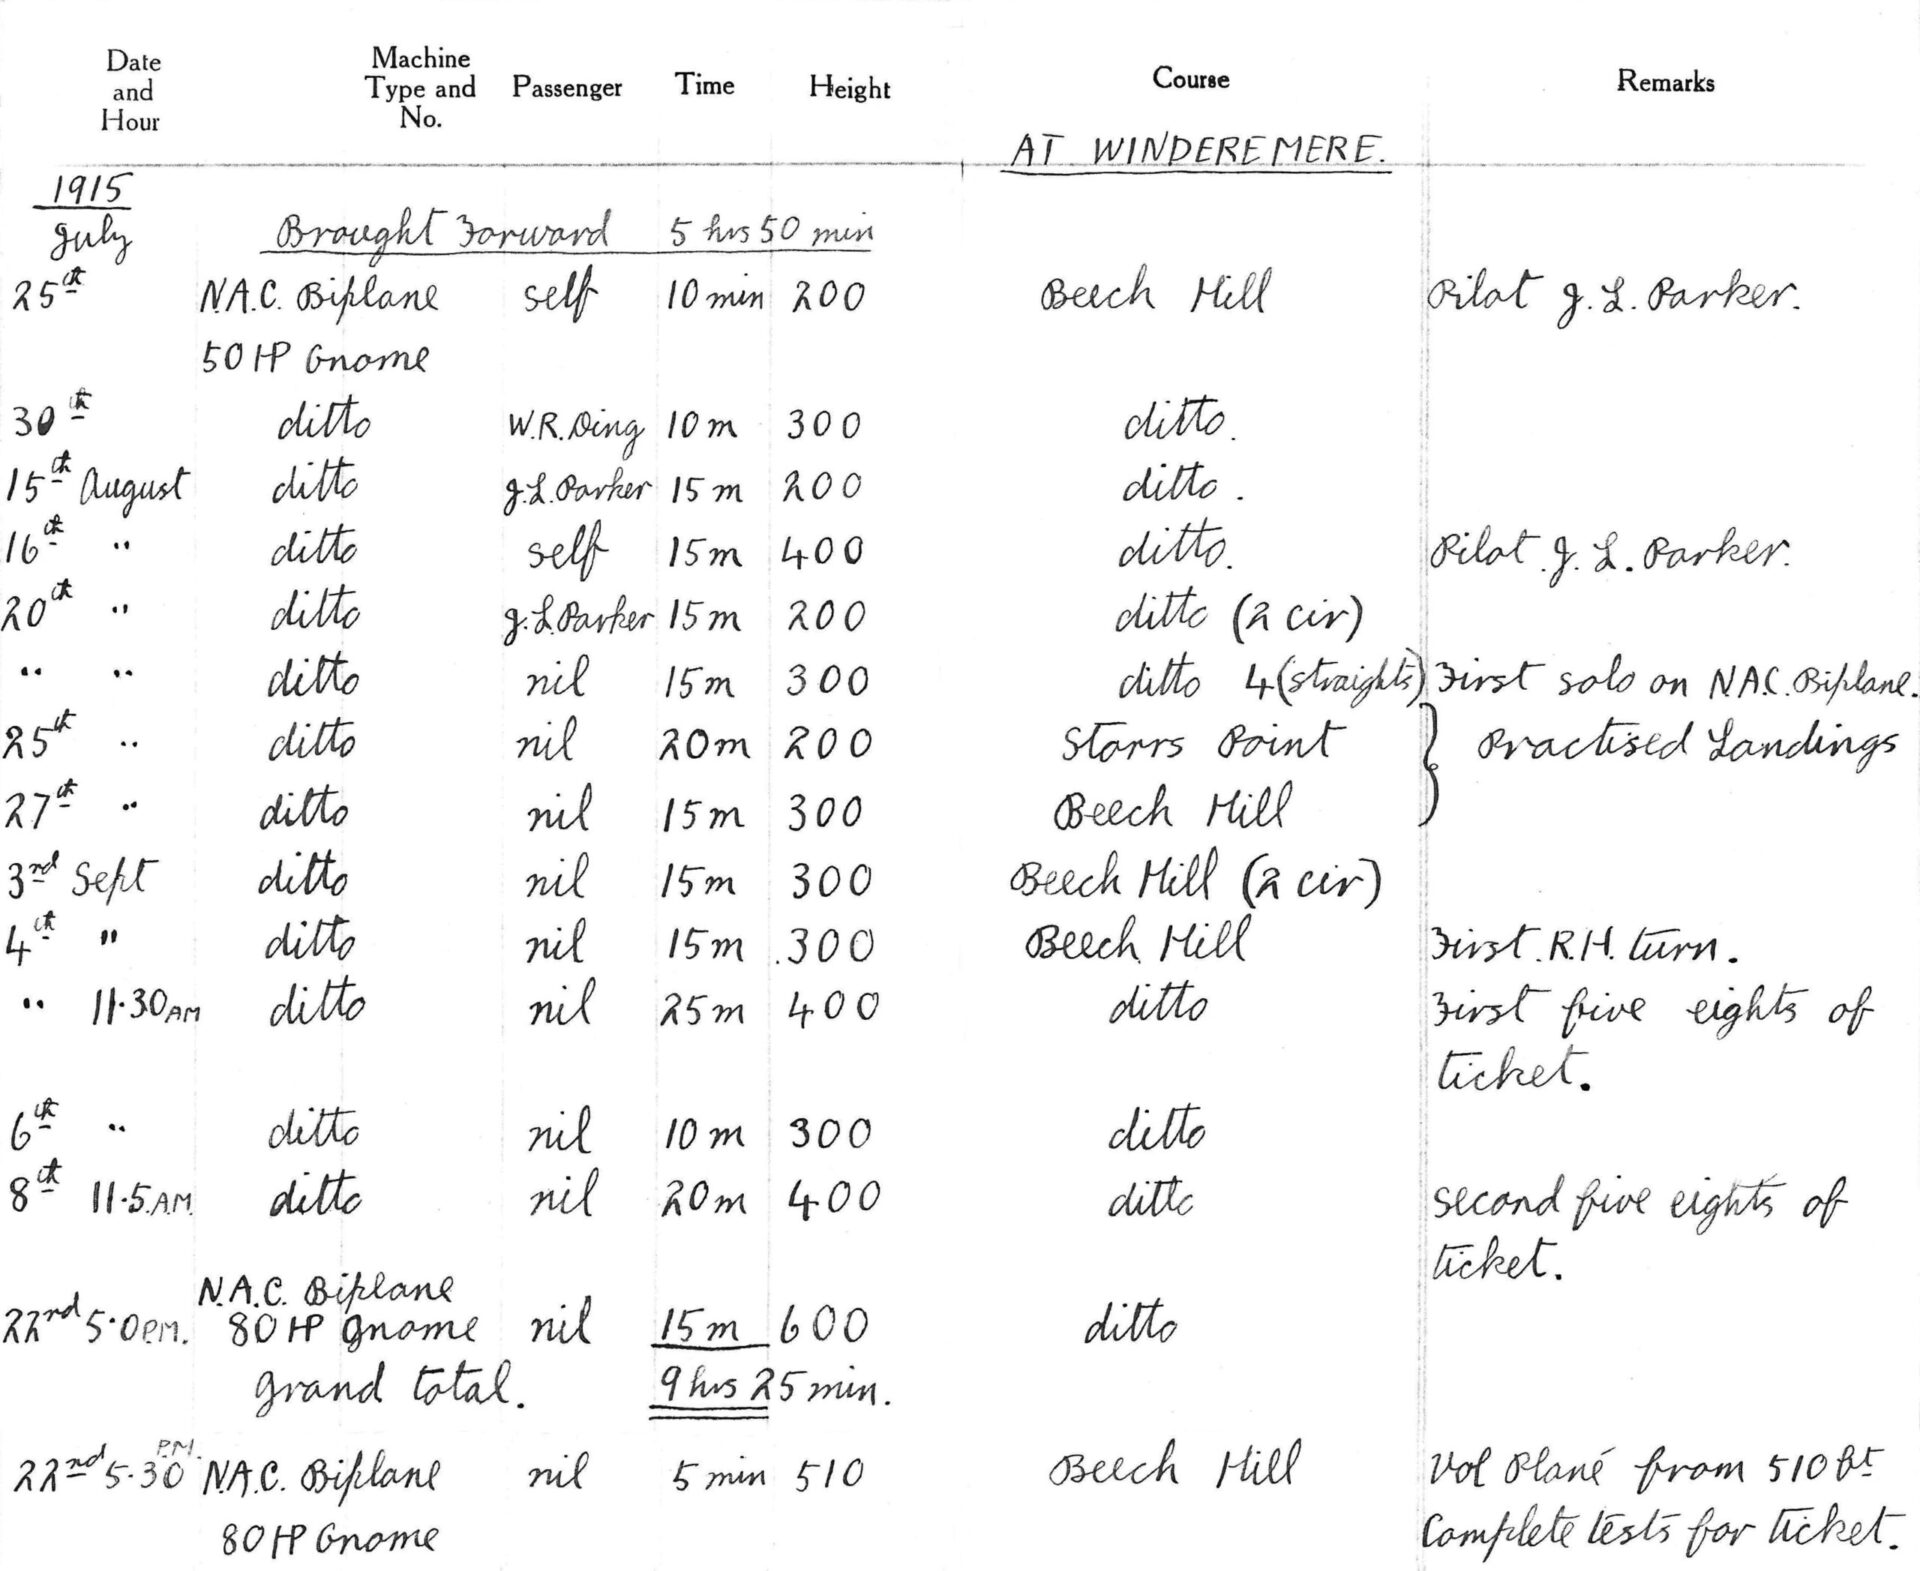 Date and Hour Machine Type and No. Passenger Time Height Course Remarks
AT WINDEREMERE.
1915
July Brought Forward 5 hrs 50 min
25th N.A.C. Biplane self 10 min 200 Beech Hill Pilot J. L. Parker.
50 HP Gnome
30th ditto W.R. Ding 10 m 300 ditto.
15th August ditto J.L. Parker 15 m 200 ditto.
16th " ditto self 15 m 400 ditto. Pilot J. L. Parker.
20th " ditto J.L. Parker 15 m 200 ditto (2 cir)
" " ditto nil 15 m 300 ditto 4 (straights) First solo on N.A.C. Biplane.
25th " ditto nil 20 m 200 Storrs Point } Practised Landings
27th " ditto nil 15 m 300 Beech Hill
3rd Sept ditto nil 15 m 300 Beech Hill (2 cir)
4th " ditto nil 15 m 300 Beech Hill First R.H. turn.
" 11.30 AM ditto nil 25 m 400 ditto First five eights of
ticket.
6th " ditto nil 10 m 300 ditto
8th 11.5. A.M. ditto nil 20 m 400 ditto second five eights of
ticket.
N.A.C. Biplane
22nd 5.0 P.M. 80 HP Gnome nil 15 m 600 ditto
Grand total. 9 hrs 25 min.
22nd 5.30 P.M. N.A.C. Biplane nil 5 min 510 Beech Hill Vol Plané from 510 ft
80 HP Gnome Complete tests for ticket.